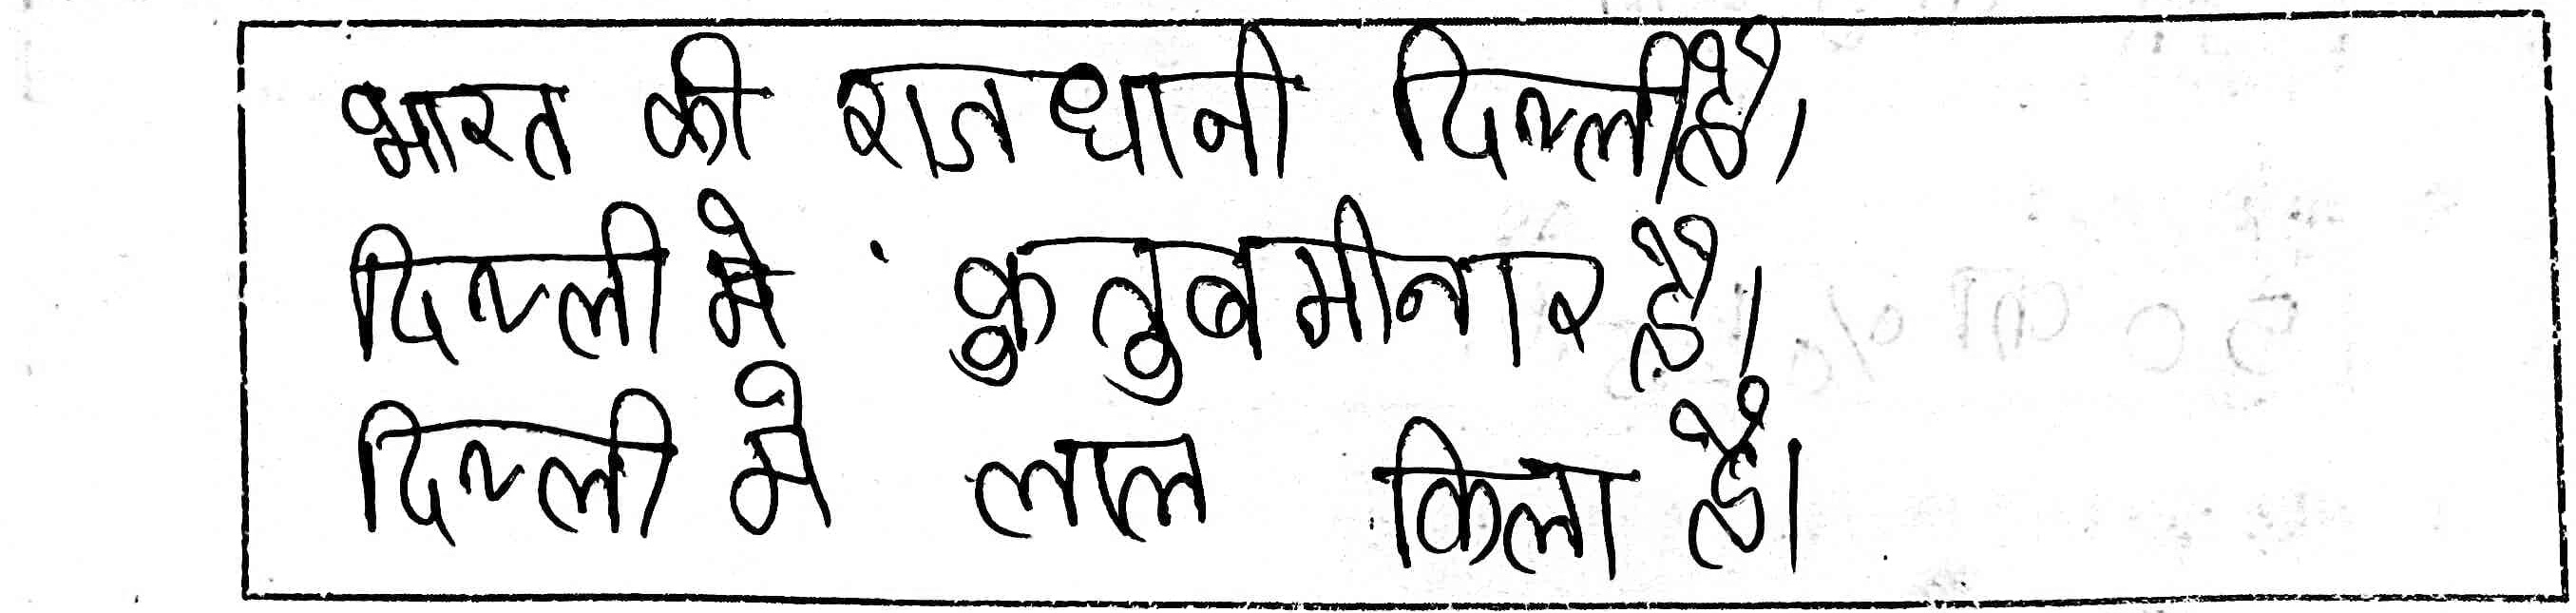 भारत की राजधानी दिल्ली है।
दिल्ली मे कुतुबमीनार है।
दिल्ली मे लाल किला है।